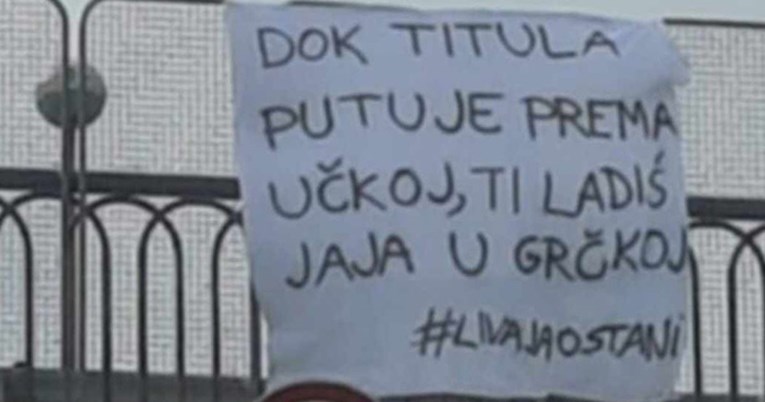 DOK TITULA
PUTUJE PREMA
UČKOJ, TI LADIŚ
JAJA U GRČKOJ
#LIVAJAOSTANI